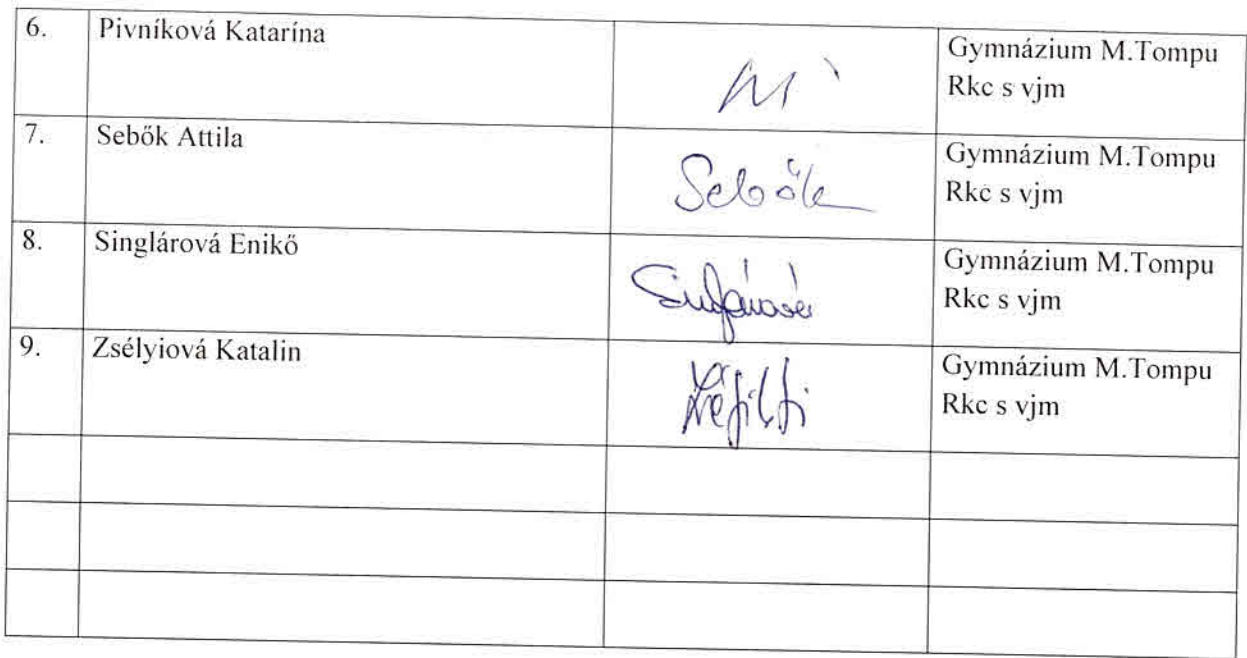 6. Pivníková Katarína Gymnázium M.Tompu
Rkc s vjm
7. Sebők Attila Sebők Gymnázium M.Tompu
Rkc s vjm
8. Singlárová Enikő Gymnázium M.Tompu
Rkc s vjm
9. Zsélyiová Katalin Gymnázium M.Tompu
Rkc s vjm